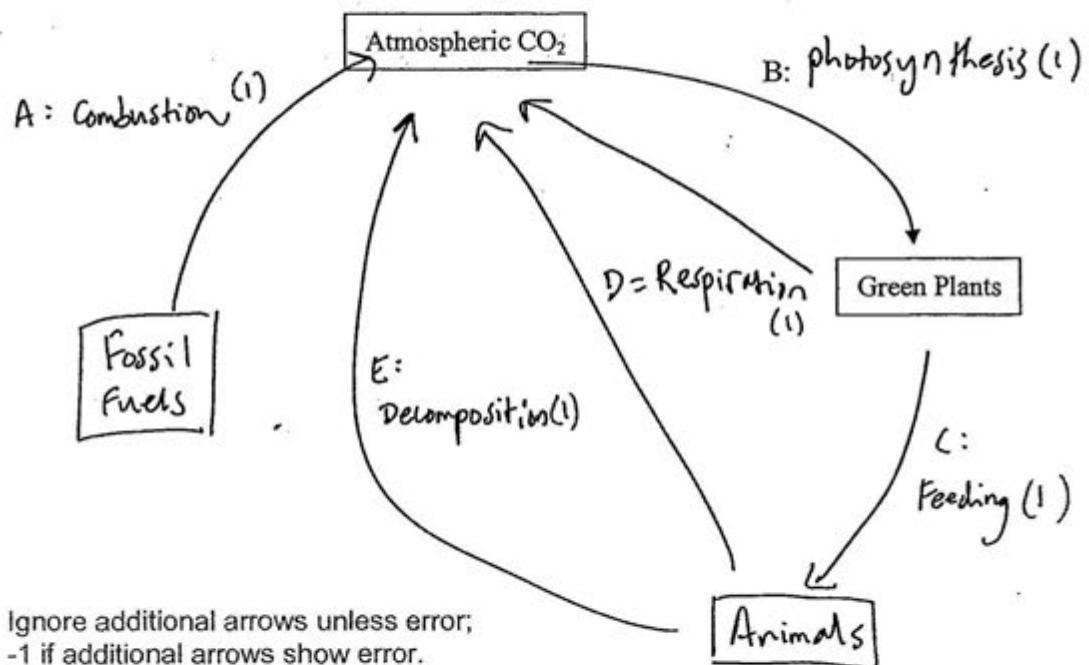 Atmospheric CO₂
A: Combustion (1)
B: photosynthesis (1)
D = Respiration
(1)
Green Plants
Fossil
Fuels
E:
Decomposition (1)
C:
Feeding (1)
Animals
Ignore additional arrows unless error;
-1 if additional arrows show error.